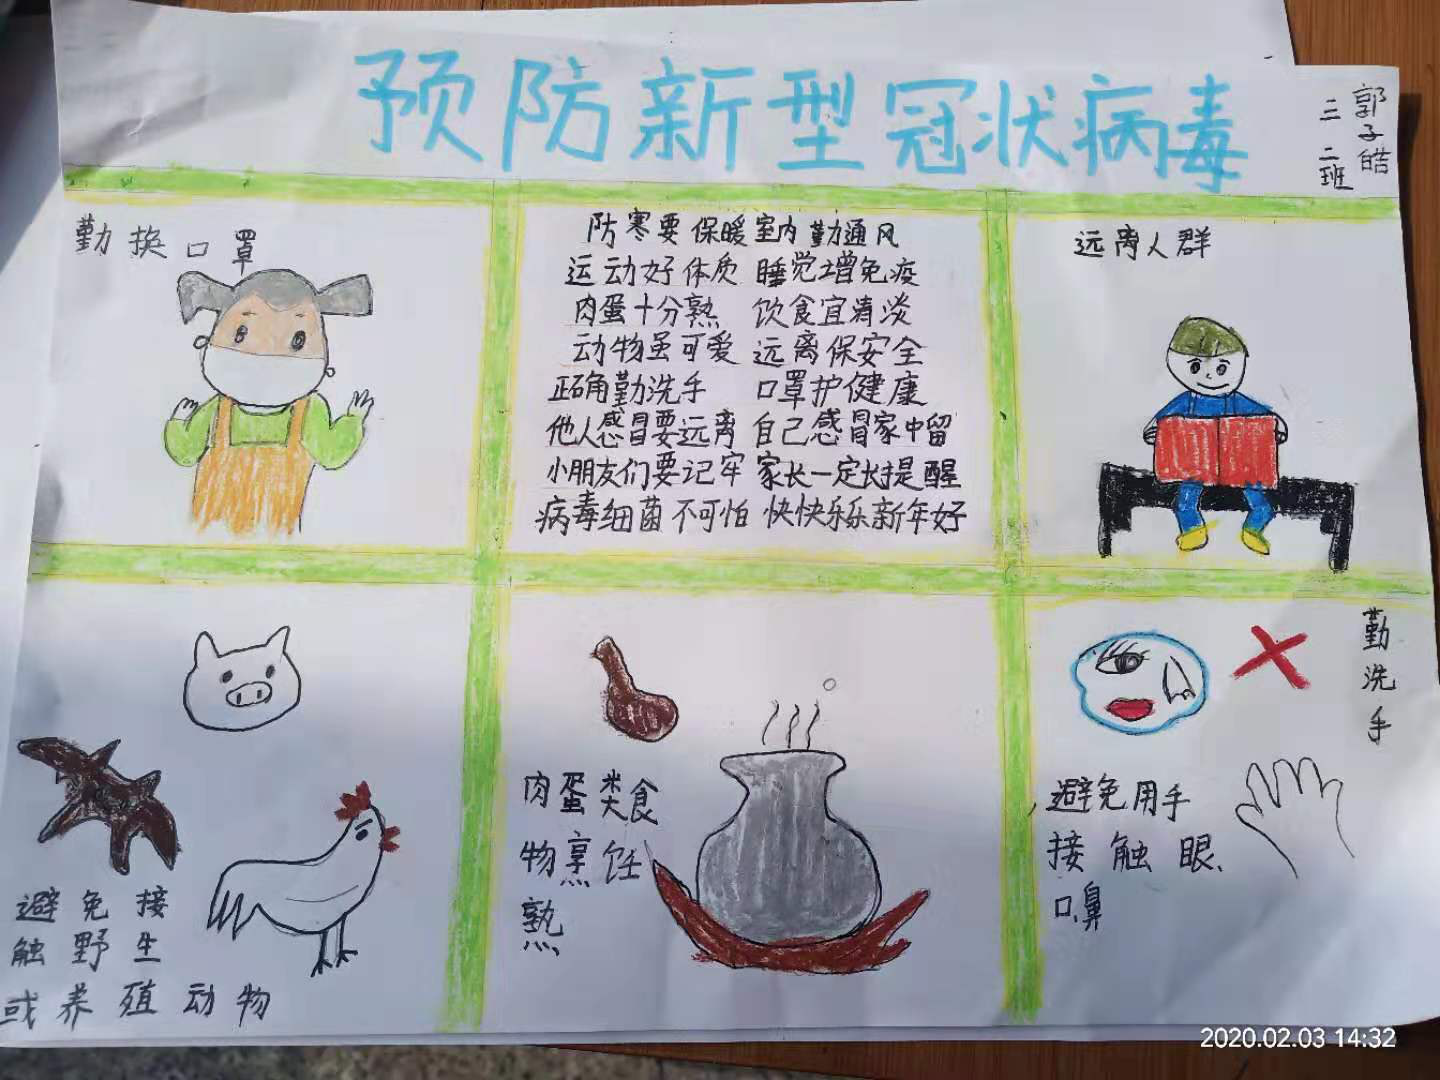 预防新型冠状病毒
郭子皓
三 二班
勤换口罩
防寒要保暖 室内勤通风
运动好体质 睡觉增免疫
肉蛋十分熟 饮食宜清淡
动物虽可爱 远离保安全
正确勤洗手 口罩护健康
他人感冒要远离 自己感冒家中留
小朋友们要记牢 家长一定长提醒
病毒细菌不可怕 快快乐乐新年好
远离人群
避免接
触野生
或养殖动物
肉蛋类食
物烹饪
熟
勤洗手
避免用手
接触眼、
口、鼻
2020.02.03 14:32